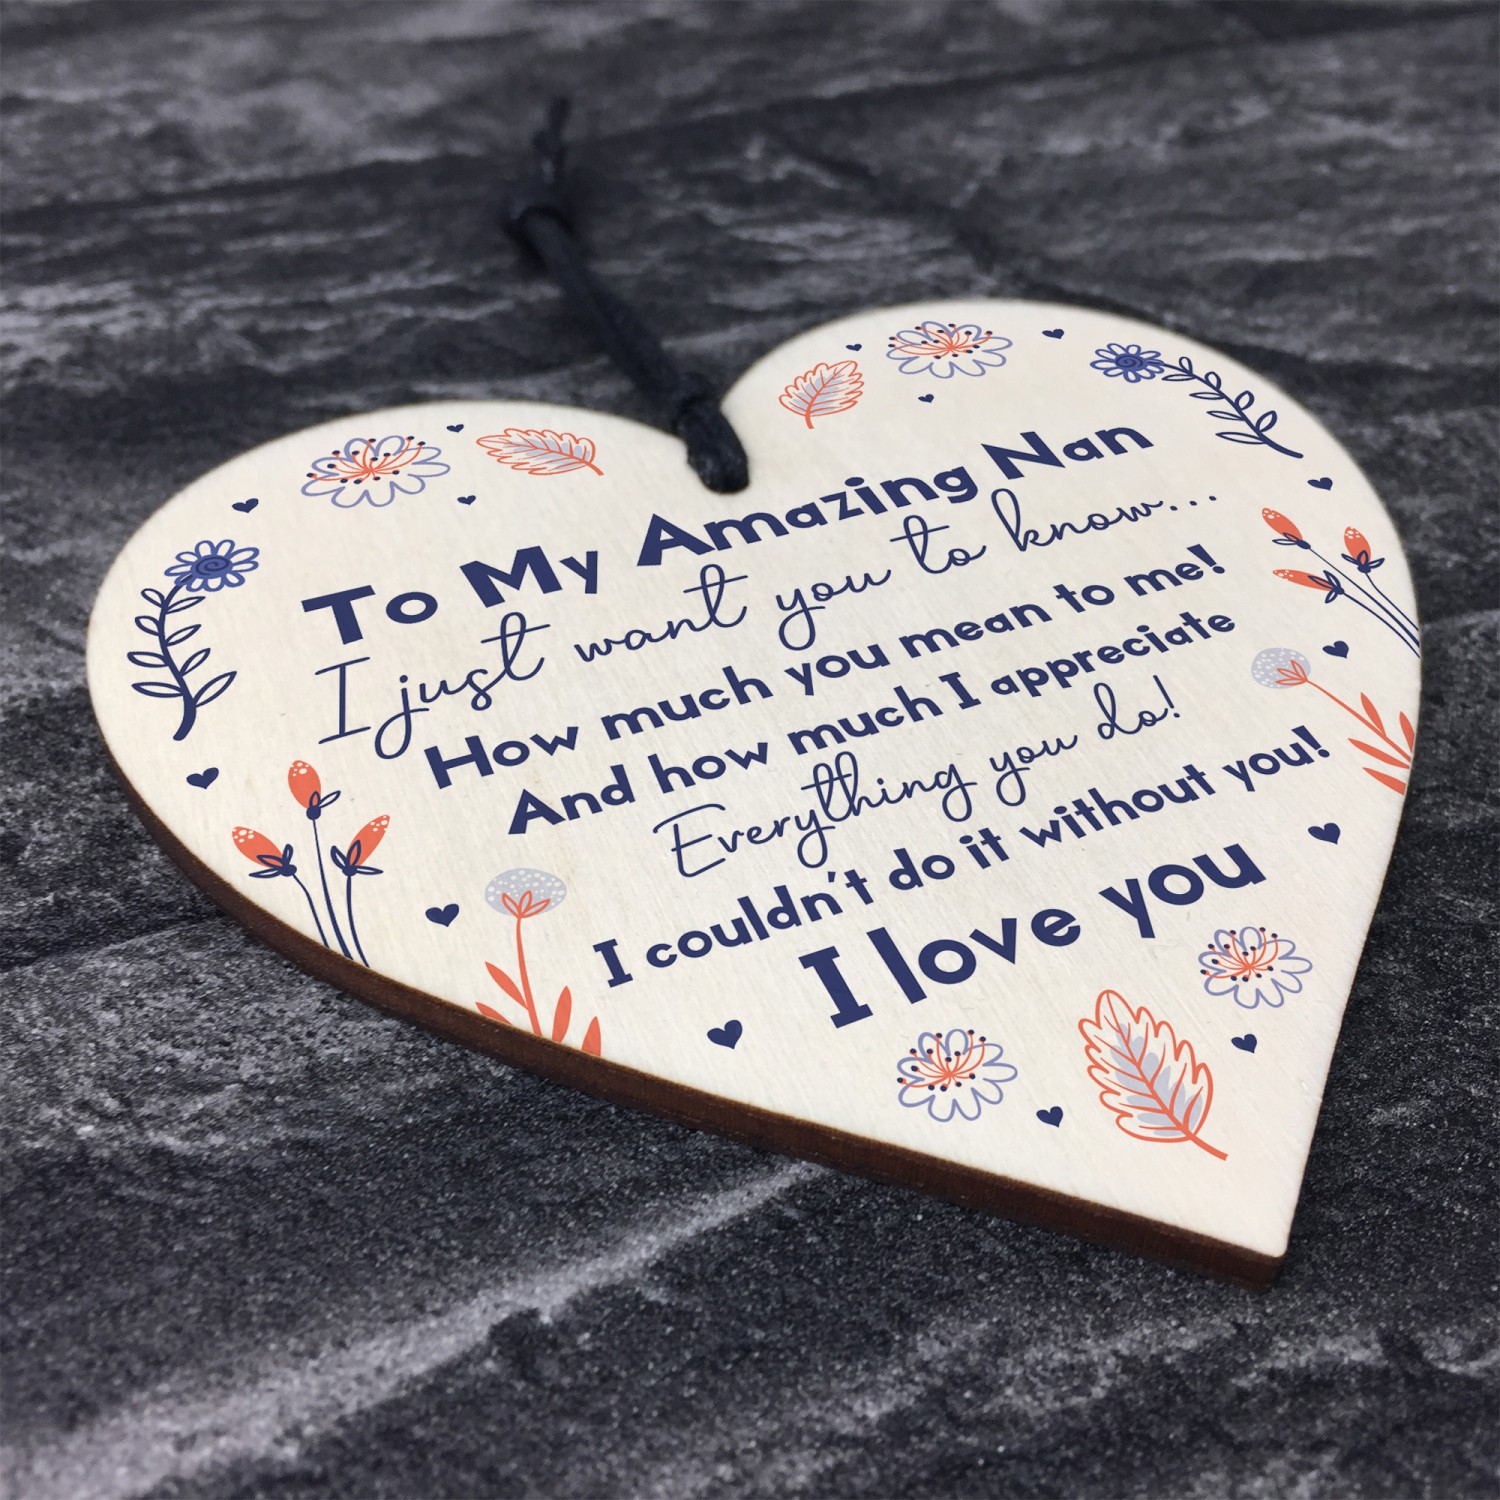 To My Amazing Nan
I just want you to know...
How much you mean to me!
And how much I appreciate
Everything you do!
I couldn't do it without you!
I love you